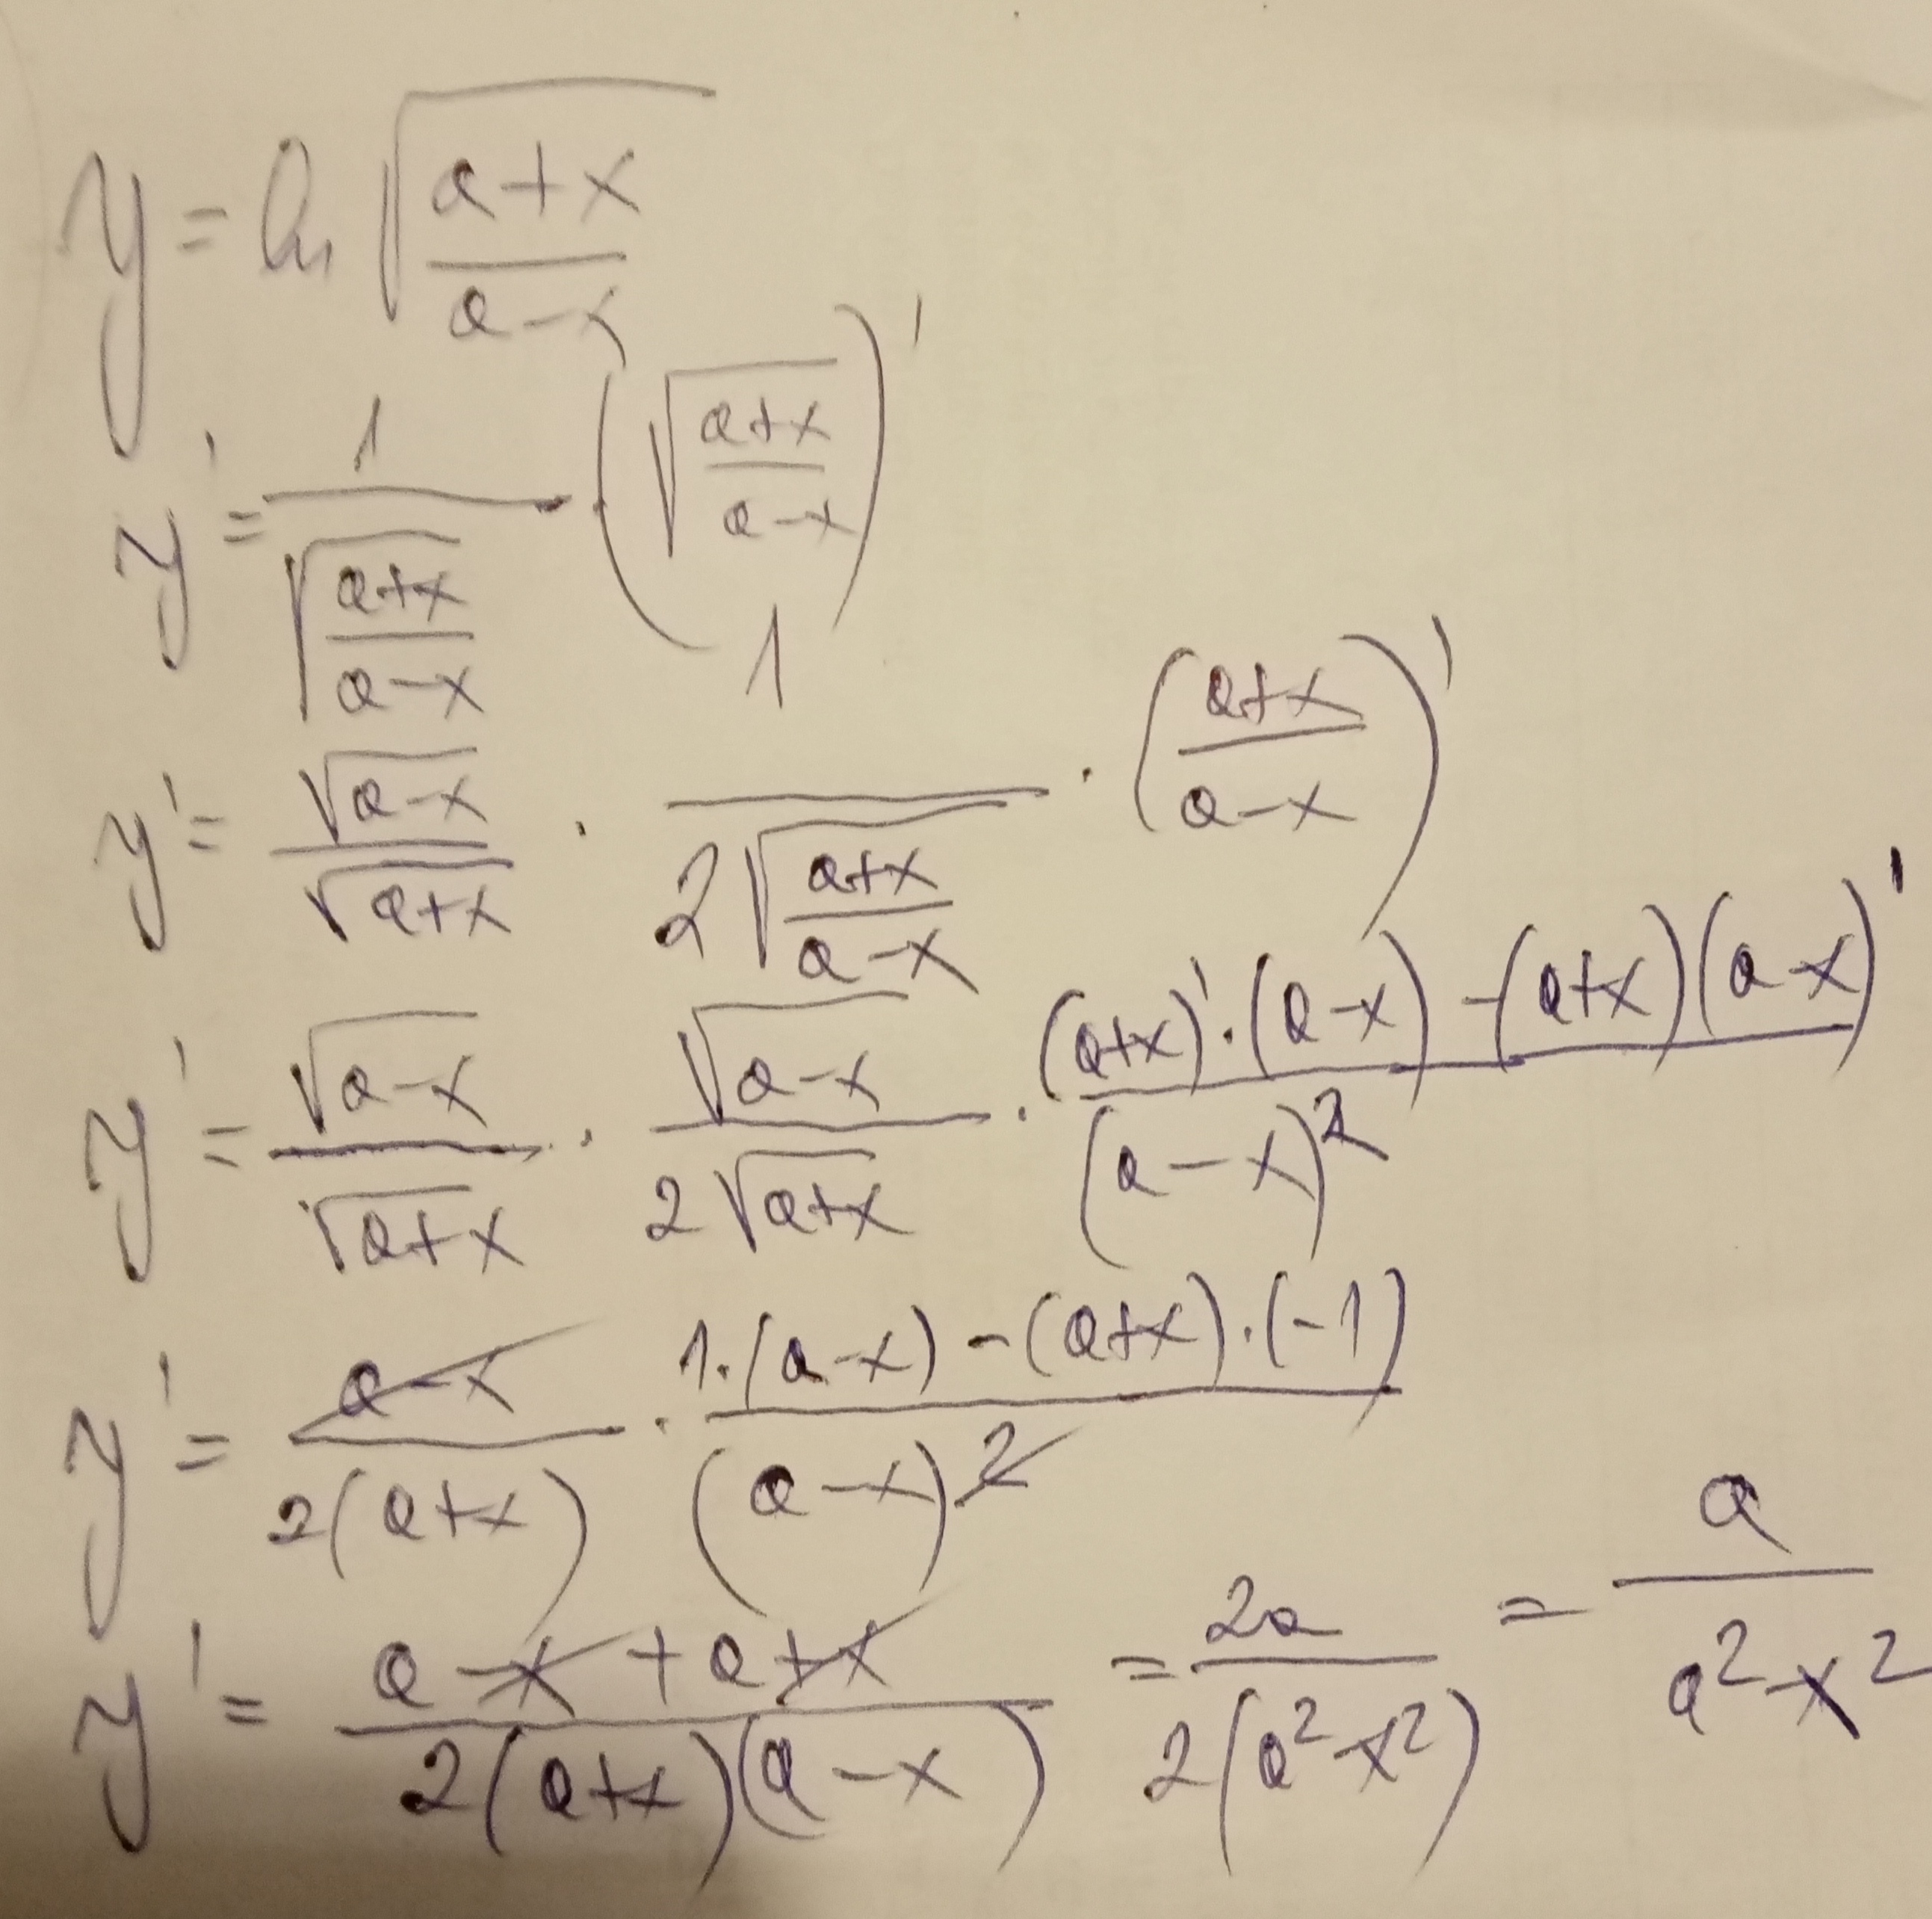 y = ln √((a+x)/(a-x))
y' = 1/√((a+x)/(a-x)) · (√((a+x)/(a-x)))'
y' = √(a-x)/√(a+x) · 1/(2√((a+x)/(a-x))) · ((a+x)/(a-x))'
y' = √(a-x)/√(a+x) · √(a-x)/(2√(a+x)) · ((a+x)'·(a-x) - (a+x)(a-x)')/(a-x)²
y' = (a-x)/(2(a+x)) · (1·(a-x) - (a+x)·(-1))/(a-x)²
y' = (a-x+a+x)/(2(a+x)(a-x)) = 2a/(2(a²-x²)) = a/(a²-x²)